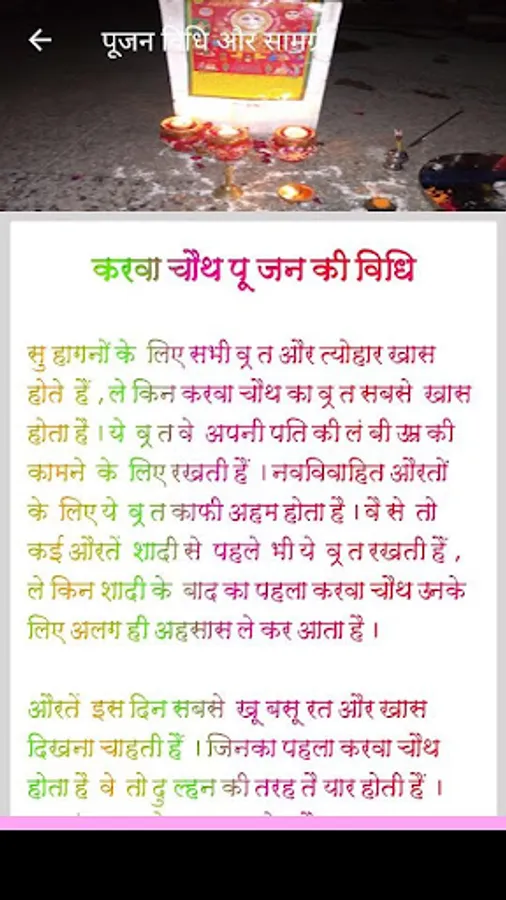 पूजन विधि और सामग्री
करवा चौथ पू जन की विधि
सु हागनों के लिए सभी व्र त और त्योहार खास
होते हैं , ले किन करवा चौथ का व्र त सबसे खास
होता है । ये व्र त वे अपनी पति की लं बी उम्र की
कामने के लिए रखती हैं । नवविवाहित औरतों
के लिए ये व्र त काफी अहम होता है । वै से तो
कई औरतें शादी से पहले भी ये व्र त रखती हैं ,
ले किन शादी के बाद का पहला करवा चौथ उनके
लिए अलग ही अहसास ले कर आता है ।
औरतें इस दिन सबसे खू बसू रत और खास
दिखना चाहती हैं । जिनका पहला करवा चौथ
होता है वे तो दु ल्हन की तरह तै यार होती हैं ।